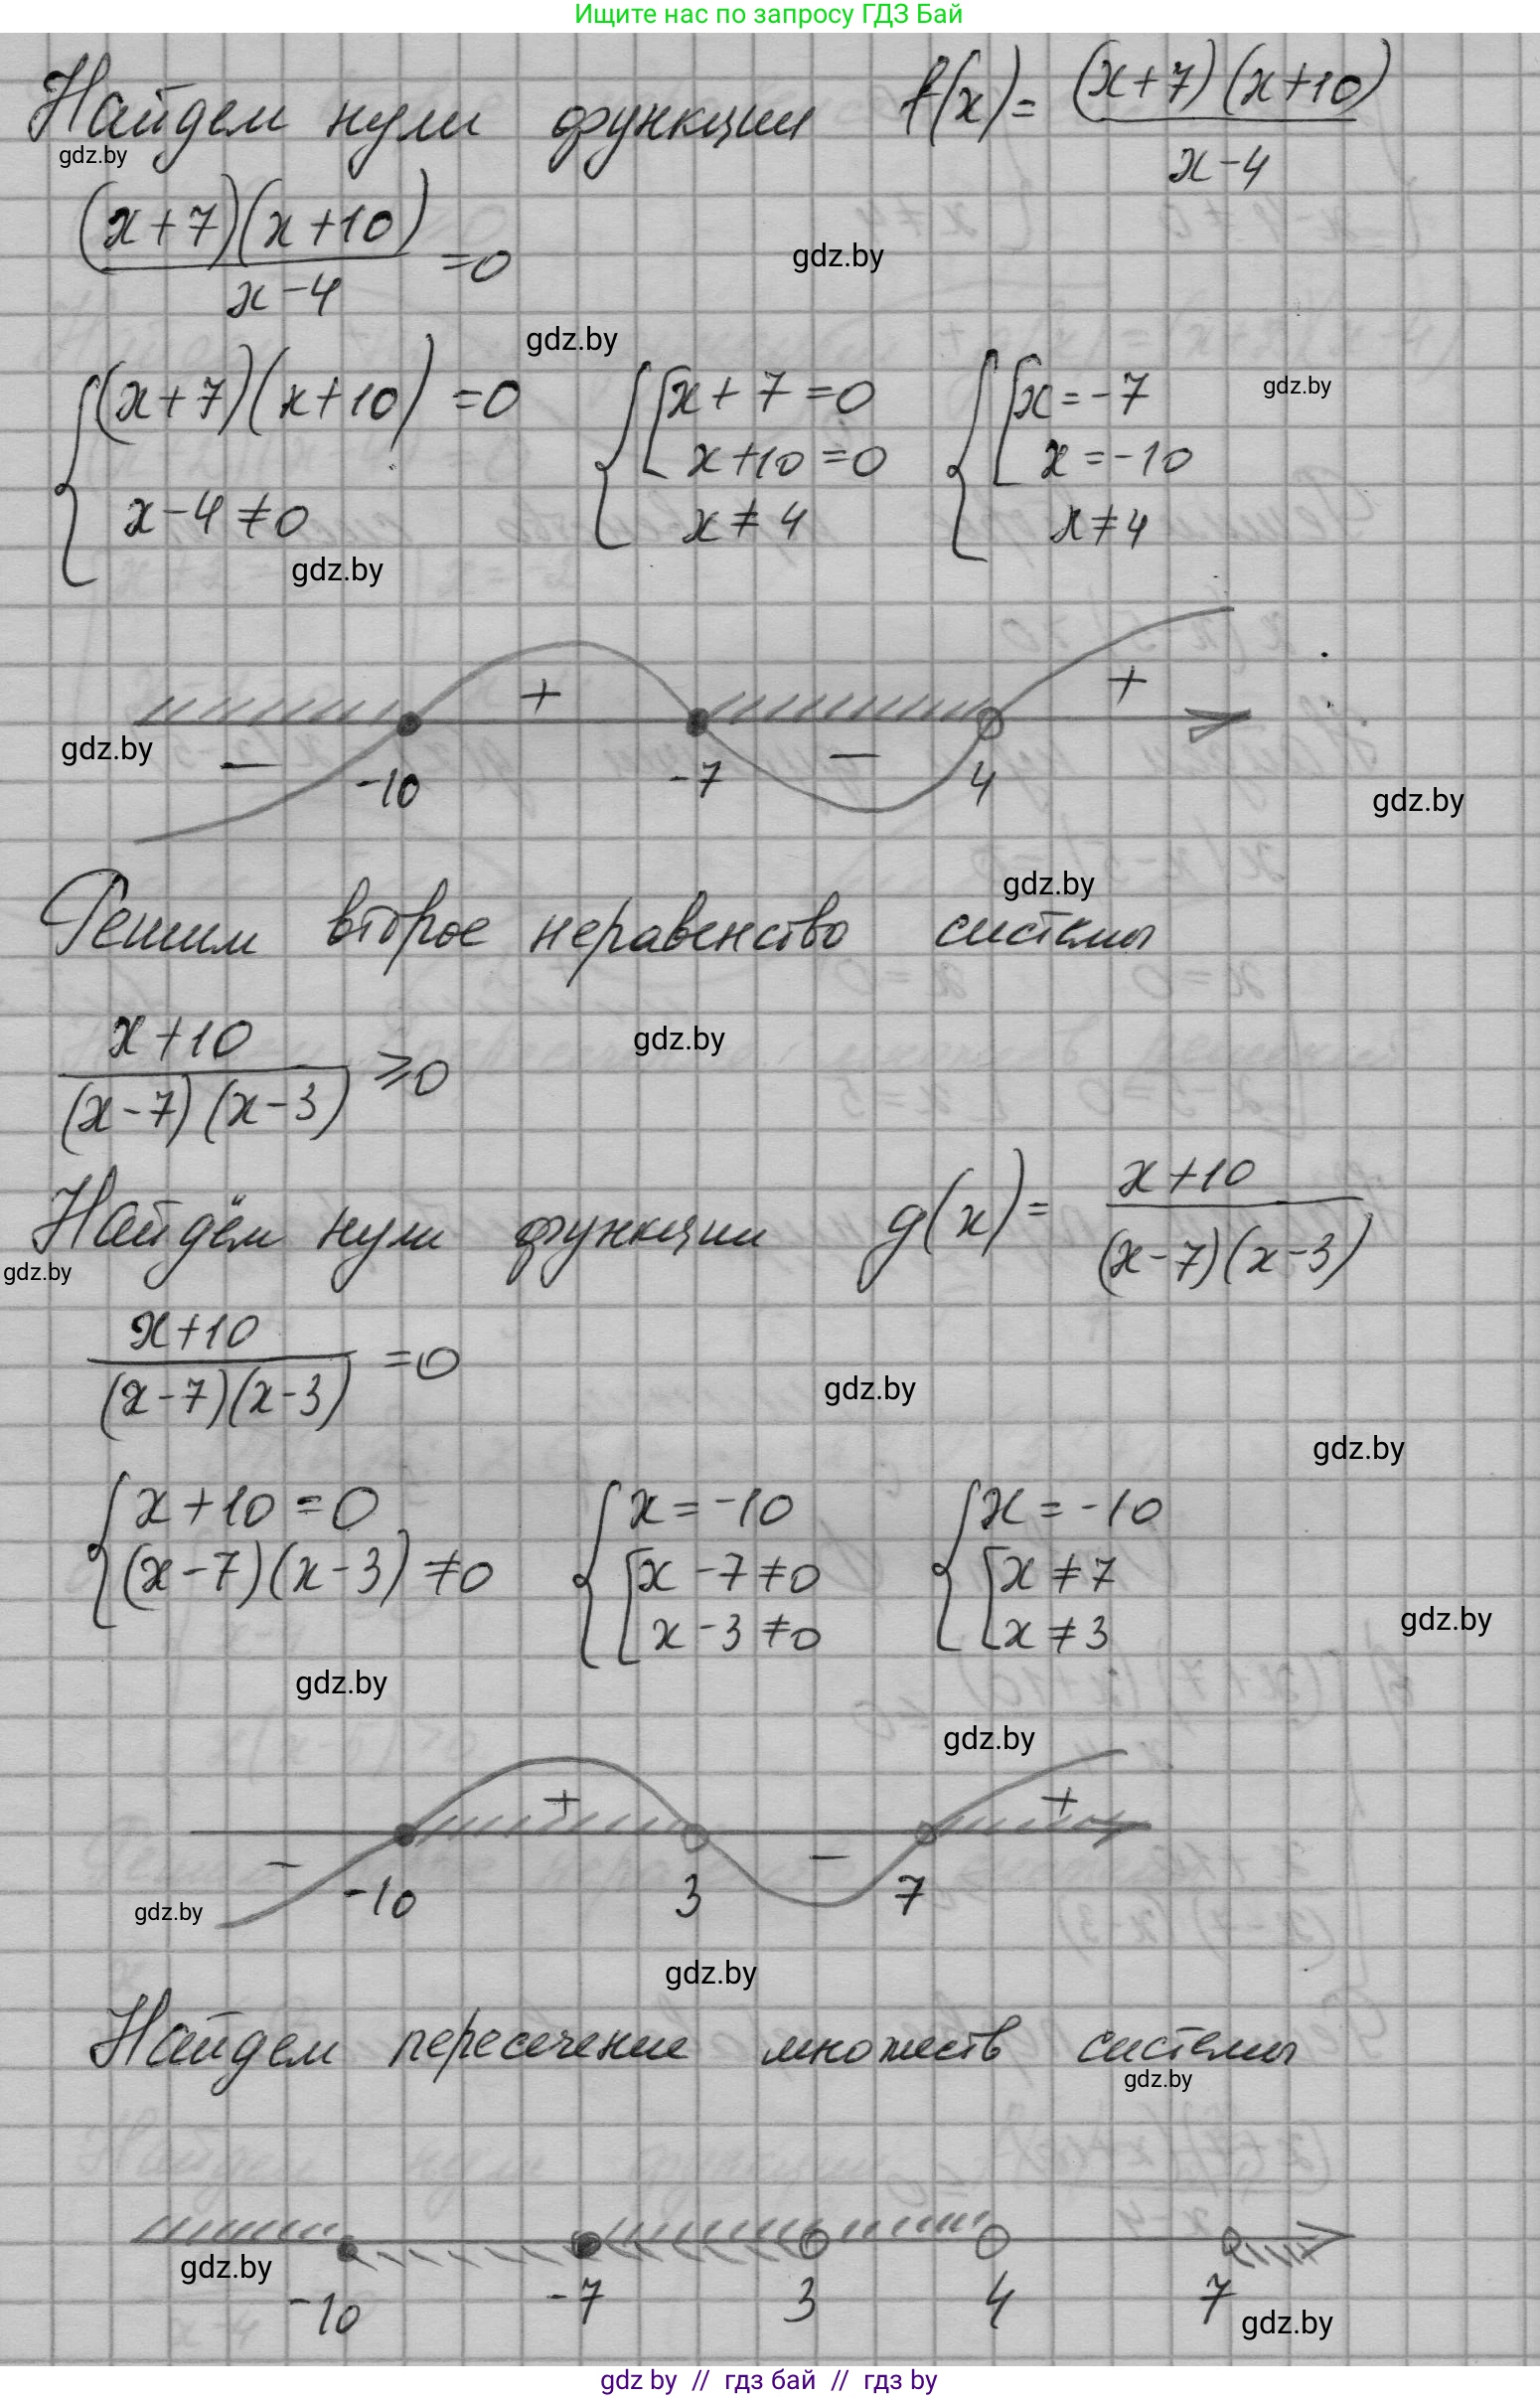 Ищите нас по запросу ГДЗ Бай
Найдем нули функции f(x) = (x+7)(x+10)
x-4
gdz.by
(x+7)(x+10)
x-4
=0
gdz.by
gdz.by
(x+7)(x+10) =0
x+7=0
x=-7
gdz.by
x+10=0
x=-10
x-4≠0
x≠4
x≠4
gdz.by
+
+
gdz.by
-
-
-10
-7
4
gdz.by
gdz.by
Решим второе неравенство системы
x+10
(x-7)(x-3)
≥0
gdz.by
Найдём нули функции g(x) = x+10
(x-7)(x-3)
gdz.by
x+10
(x-7)(x-3)
=0
gdz.by
gdz.by
x+10=0
x=-10
x=-10
(x-7)(x-3)≠0
x-7≠0
x≠7
x-3≠0
x≠3
gdz.by
gdz.by
gdz.by
+
+
-
-
-10
3
7
gdz.by
gdz.by
Найдем пересечение множеств системы
gdz.by
gdz.by
-10
-7
3
4
7
gdz.by
gdz by // гдз бай // гдз by